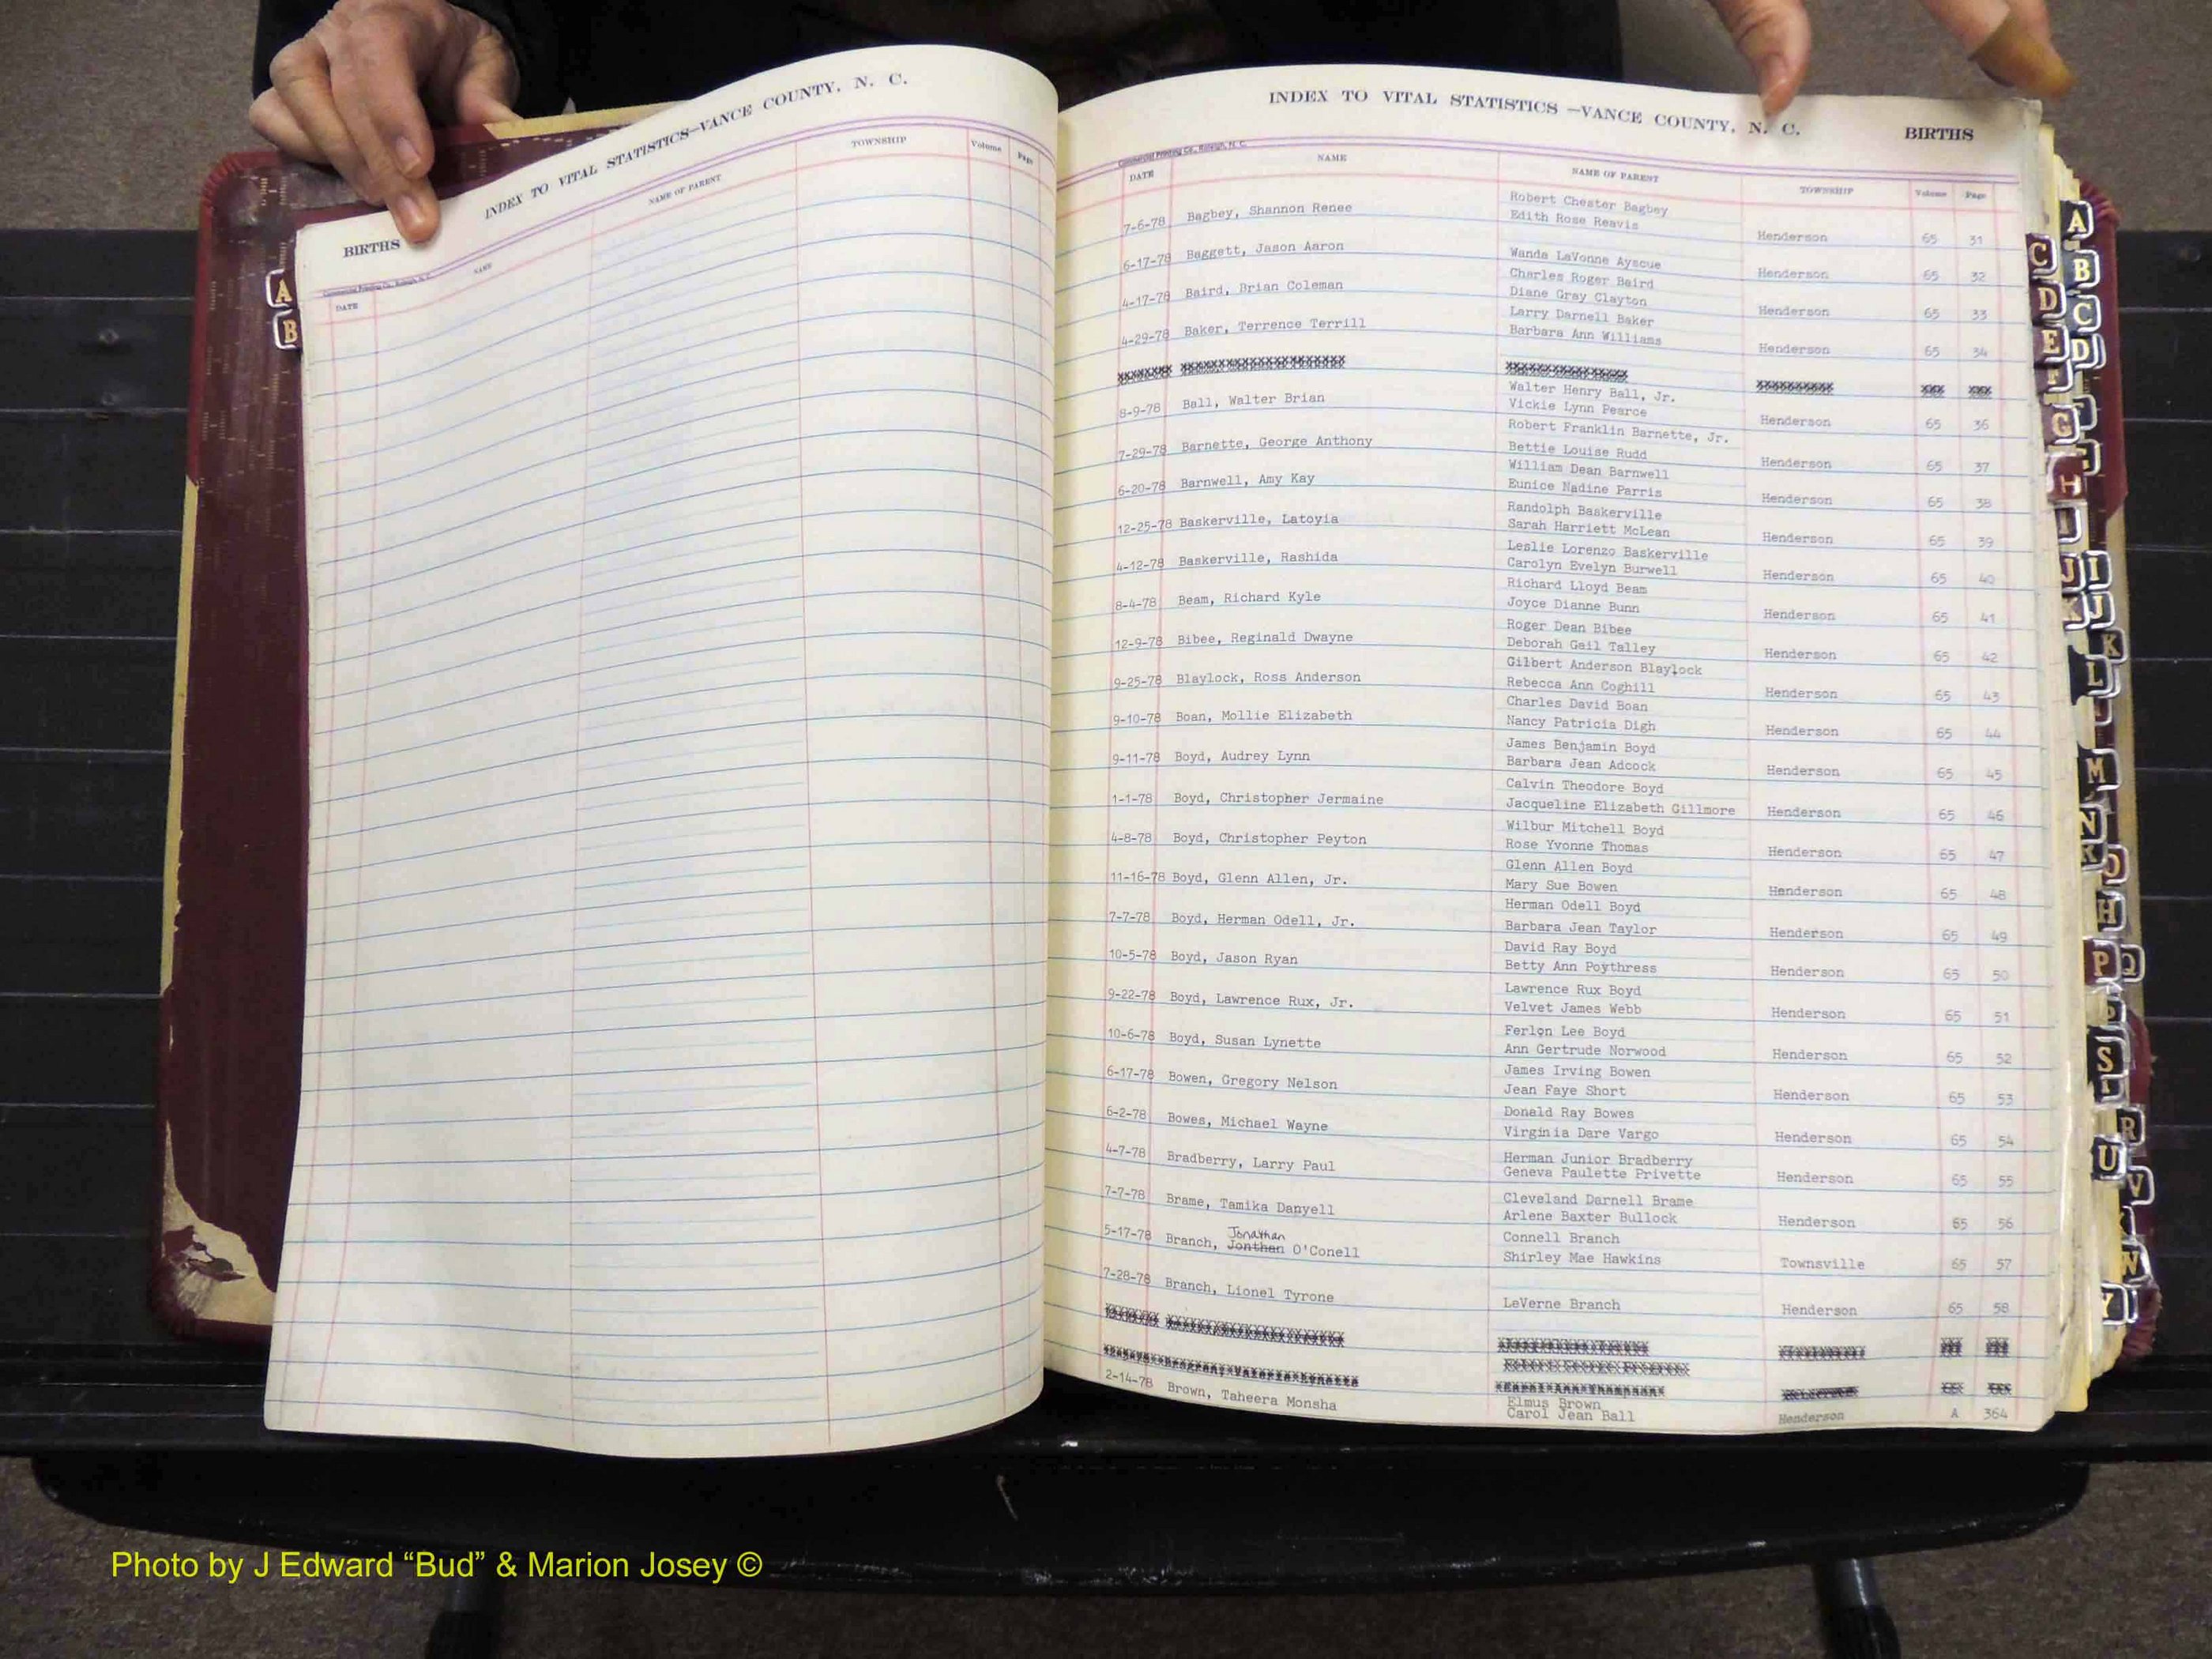 INDEX TO VITAL STATISTICS—VANCE COUNTY, N. C.
BIRTHS
Commercial Printing Co., Raleigh, N. C.
DATE NAME NAME OF PARENT TOWNSHIP Volume Page
A
B
INDEX TO VITAL STATISTICS —VANCE COUNTY, N. C.
BIRTHS
Commercial Printing Co., Raleigh, N. C.
DATE NAME NAME OF PARENT TOWNSHIP Volume Page
Robert Chester Bagbey
7-6-78 Bagbey, Shannon Renee Edith Rose Reavis Henderson 65 31
6-17-78 Baggett, Jason Aaron Wanda LaVonne Ayscue Henderson 65 32
Charles Roger Baird
4-17-78 Baird, Brian Coleman Diane Gray Clayton Henderson 65 33
Larry Darnell Baker
4-29-78 Baker, Terrence Terrill Barbara Ann Williams Henderson 65 34
Walter Henry Ball, Jr.
8-9-78 Ball, Walter Brian Vickie Lynn Pearce Henderson 65 36
Robert Franklin Barnette, Jr.
7-29-78 Barnette, George Anthony Bettie Louise Rudd Henderson 65 37
William Dean Barnwell
6-20-78 Barnwell, Amy Kay Eunice Nadine Parris Henderson 65 38
Randolph Baskerville
12-25-78 Baskerville, Latoyia Sarah Harriett McLean Henderson 65 39
Leslie Lorenzo Baskerville
4-12-78 Baskerville, Rashida Carolyn Evelyn Burwell Henderson 65 40
Richard Lloyd Beam
8-4-78 Beam, Richard Kyle Joyce Dianne Bunn Henderson 65 41
Roger Dean Bibee
12-9-78 Bibee, Reginald Dwayne Deborah Gail Talley Henderson 65 42
Gilbert Anderson Blaylock
9-25-78 Blaylock, Ross Anderson Rebecca Ann Coghill Henderson 65 43
Charles David Boan
9-10-78 Boan, Mollie Elizabeth Nancy Patricia Digh Henderson 65 44
James Benjamin Boyd
9-11-78 Boyd, Audrey Lynn Barbara Jean Adcock Henderson 65 45
Calvin Theodore Boyd
1-1-78 Boyd, Christopher Jermaine Jacqueline Elizabeth Gillmore Henderson 65 46
Wilbur Mitchell Boyd
4-8-78 Boyd, Christopher Peyton Rose Yvonne Thomas Henderson 65 47
Glenn Allen Boyd
11-16-78 Boyd, Glenn Allen, Jr. Mary Sue Bowen Henderson 65 48
Herman Odell Boyd
7-7-78 Boyd, Herman Odell, Jr. Barbara Jean Taylor Henderson 65 49
David Ray Boyd
10-5-78 Boyd, Jason Ryan Betty Ann Poythress Henderson 65 50
Lawrence Rux Boyd
9-22-78 Boyd, Lawrence Rux, Jr. Velvet James Webb Henderson 65 51
Ferlon Lee Boyd
10-6-78 Boyd, Susan Lynette Ann Gertrude Norwood Henderson 65 52
James Irving Bowen
6-17-78 Bowen, Gregory Nelson Jean Faye Short Henderson 65 53
Donald Ray Bowes
6-2-78 Bowes, Michael Wayne Virginia Dare Vargo Henderson 65 54
Herman Junior Bradberry
4-7-78 Bradberry, Larry Paul Geneva Paulette Privette Henderson 65 55
Cleveland Darnell Brame
7-7-78 Brame, Tamika Danyell Arlene Baxter Bullock Henderson 65 56
Jonathan Connell Branch
5-17-78 Branch, Jonthan O'Conell Shirley Mae Hawkins Townsville 65 57
7-28-78 Branch, Lionel Tyrone LeVerne Branch Henderson 65 58
Elmus Brown
2-14-78 Brown, Taheera Monsha Carol Jean Ball Henderson A 364
A
C B
D C
E D
G
H
J I
J
K
L
M
N
O
H
P Q
S
R
U
V
W
Y
Photo by J Edward “Bud” & Marion Josey ©